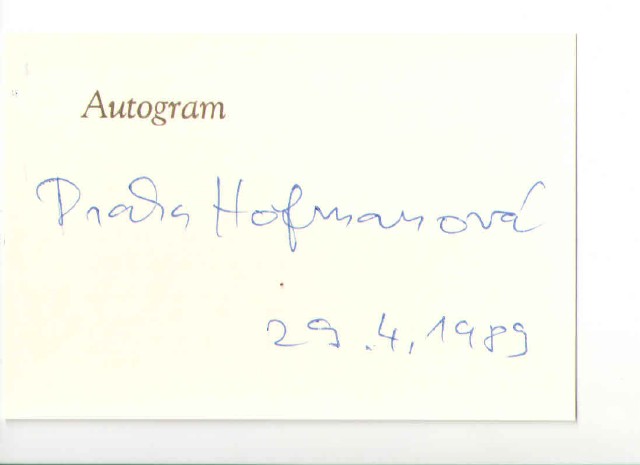 Autogram
Draha Hofmanová
29.4.1989